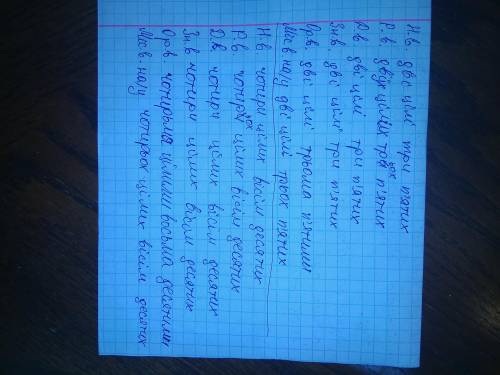 Н.в. дві цілі три п'ятих
Р.в. двух цілих трьох п'ятих
Д.в. дві цілі три п'ятих
Зн.в. дві цілі три п'ятих
Ор.в. дві цілі трьома п'ятими
Місв. на/у дві цілі трьох п'ятих
Н.в. чотири цілих вісім десятих
Р.в. чотирьох цілих вісім десятих
Д.в. чотири цілих вісім десятих
Зн.в. чотири цілих вісім десятих
Ор.в. чотирьма цілими восьма десятими
Місв. на/у чотирьох цілих вісім десятих